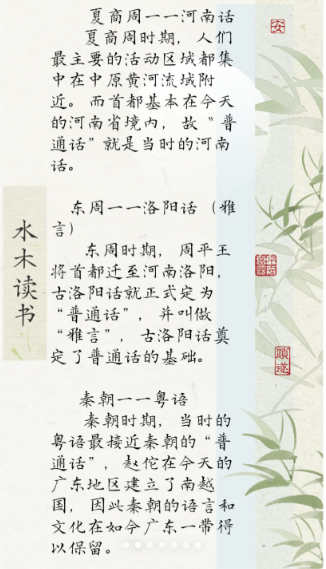 夏商周一一河南话
夏商周时期，人们
最主要的活动区域都集
中在中原黄河流域附
近。而首都基本在今天
的河南省境内，故“普
通话”就是当时的河南
话。
东周一一洛阳话（雅
言）
东周时期，周平王
将首都迁至河南洛阳，
古洛阳话就正式定为
“普通话”，并叫做
“雅言”，古洛阳话奠
定了普通话的基础。
秦朝一一粤语
秦朝时期，当时的
粤语最接近秦朝的“普
通话”，赵佗在今天的
广东地区建立了南越
国，因此秦朝的语言和
文化在如今广东一带得
以保留。
水木读书